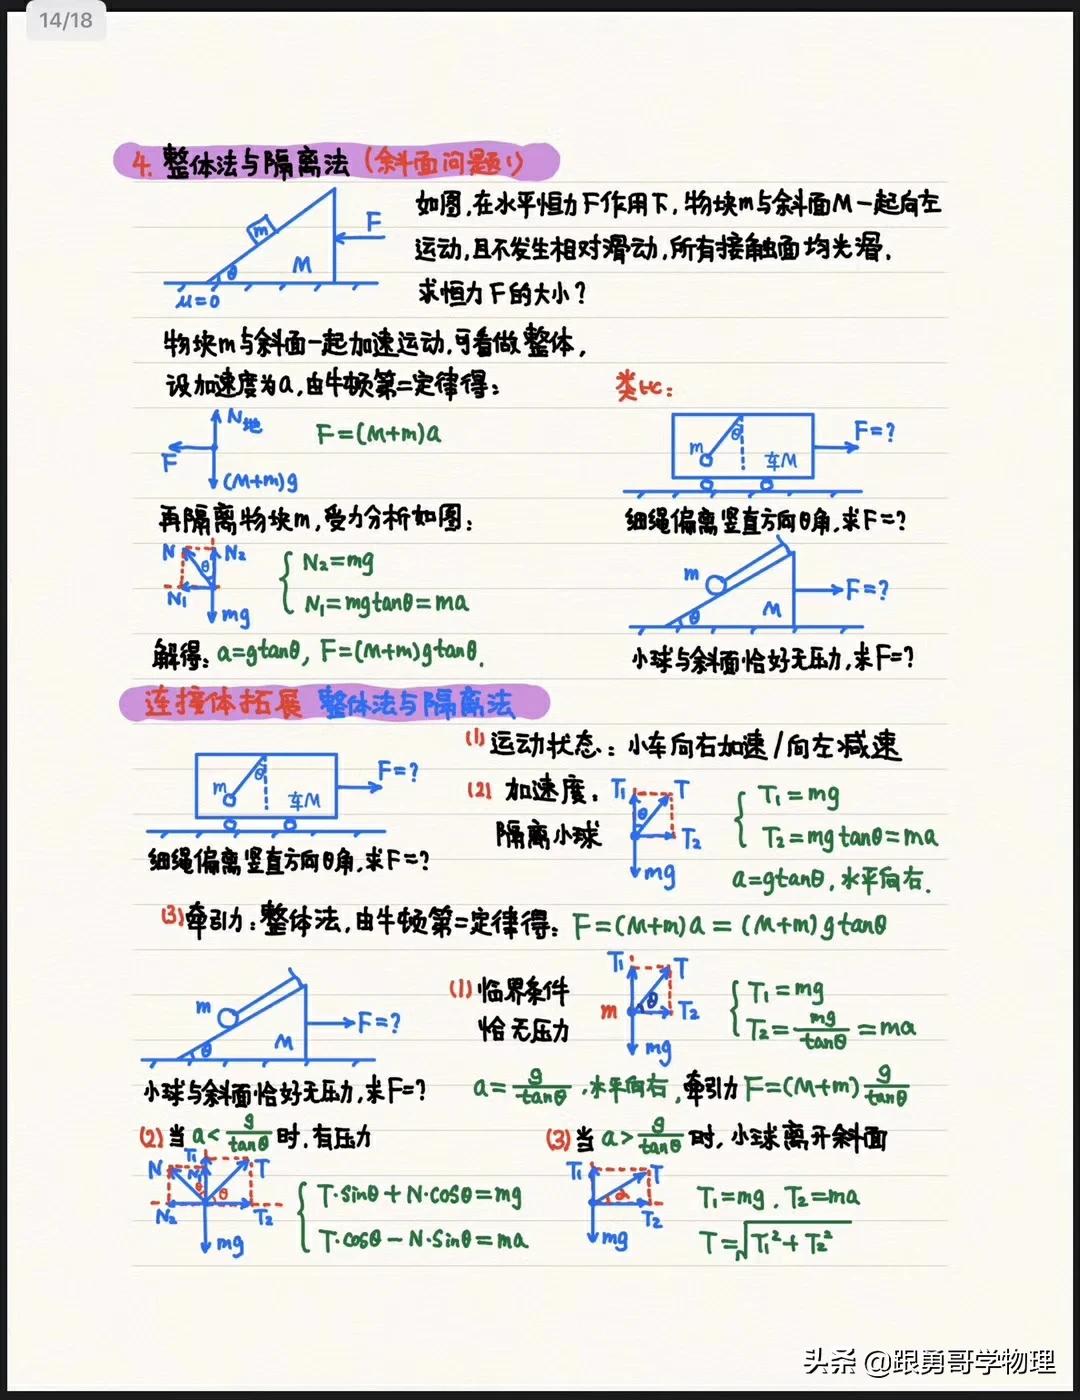 14/18
4. 整体法与隔离法 (斜面问题1)
如图,在水平恒力F作用下,物块m与斜面M一起向左
运动,且不发生相对滑动,所有接触面均光滑.
求恒力F的大小?
m
F
θ
M
μ=0
物块m与斜面一起加速运动,可看做整体,
设加速度为a,由牛顿第二定律得:
N地
F
(M+m)g
F=(M+m)a
再隔离物块m,受力分析如图:
N
θ
N₂
N₁
mg
N₂=mg
N₁=mgtanθ=ma
解得: a=gtanθ, F=(M+m)gtanθ.
类比:
θ
m
车M
F=?
细绳偏离竖直方向θ角,求F=?
m
θ
M
F=?
小球与斜面恰好无压力,求F=?
连接体拓展 整体法与隔离法
θ
m
车M
F=?
细绳偏离竖直方向θ角,求F=?
(1) 运动状态: 小车向右加速/向左减速
(2) 加速度.
隔离小球
T₁
T
θ
T₂
mg
T₁=mg
T₂=mgtanθ=ma
a=gtanθ,水平向右.
(3)牵引力:整体法,由牛顿第二定律得: F=(M+m)a=(M+m)gtanθ
m
θ
M
F=?
小球与斜面恰好无压力,求F=?
(1) 临界条件
恰无压力
T₁
T
m
θ
T₂
mg
T₁=mg
T₂=mg/tanθ=ma
a=g/tanθ,水平向右,牵引力 F=(M+m)g/tanθ
(2) 当 a<g/tanθ 时,有压力
N
T₁
N₁
T
θ
θ
N₂
T₂
mg
T·sinθ+N·cosθ=mg
T·cosθ-N·sinθ=ma
(3) 当 a>g/tanθ 时,小球离开斜面
T₁
T
α
T₂
mg
T₁=mg. T₂=ma
T=√(T₁²+T₂²)
头条 @跟勇哥学物理